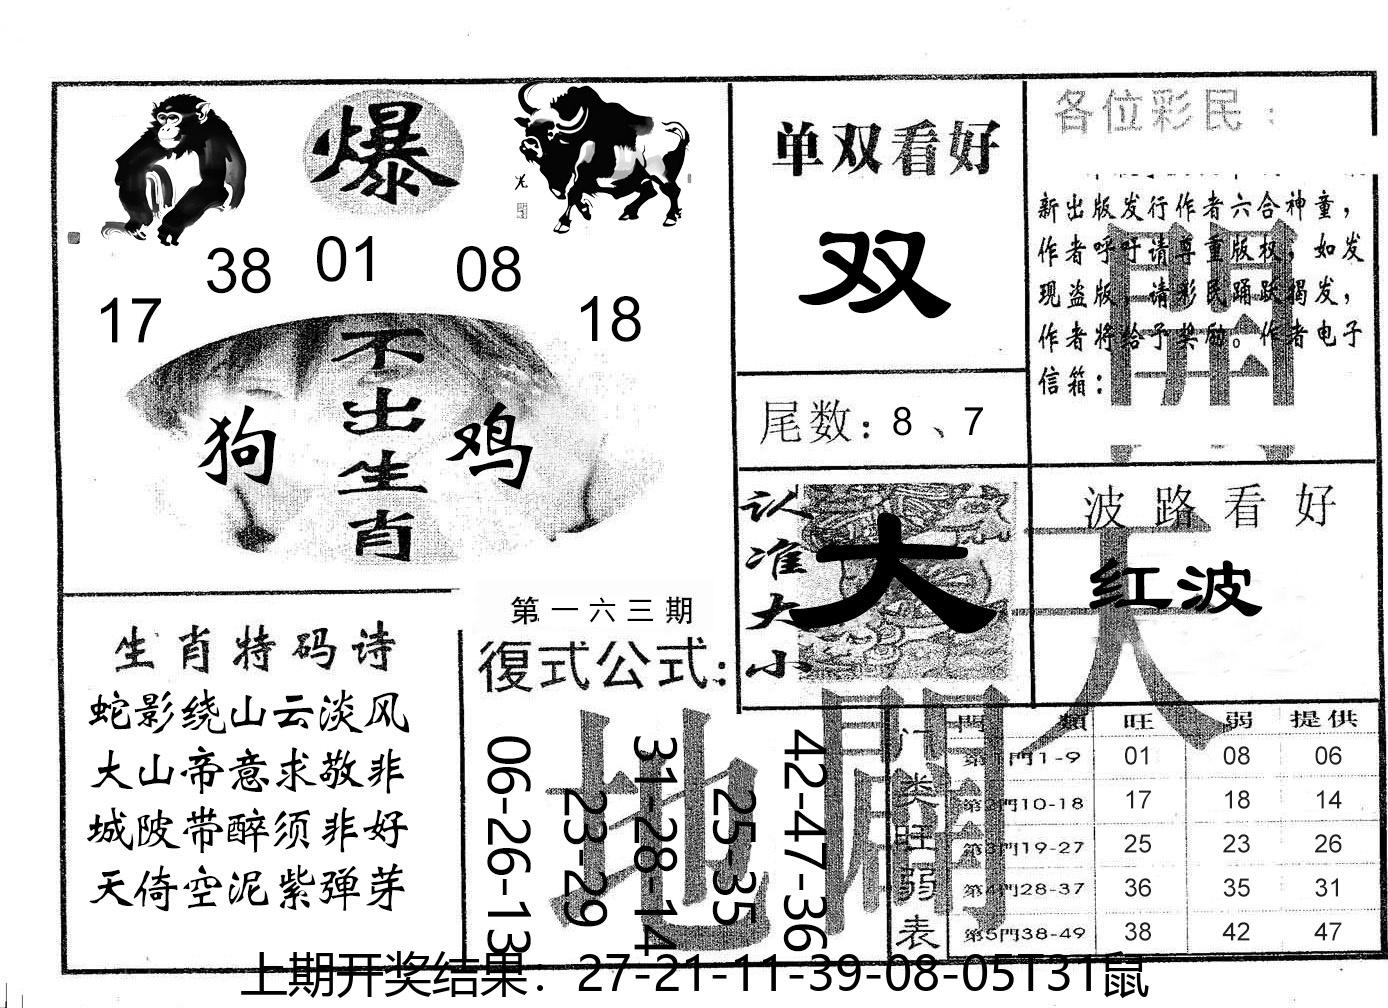 爆
38 01 08
17 18
不出生肖
狗 鸡
单双看好
双
尾数：8、7
各位彩民：
新出版发行作者六合神童，
作者呼吁请尊重版权，如发
现盗版，请彩民踊跃揭发，
作者将给予奖励。作者电子
信箱：
開
认准大小
大
波路看好
红波
天
生肖特码诗
蛇影绕山云淡风
大山帝意求敬非
城陂带醉须非好
天倚空泥紫弹芽
第一六三期
復式公式：
06-26-13
23-29
31-28-14
25-35
42-47-36
地
門类旺弱表
門類 旺 弱 提供
第1門1-9 01 08 06
第2門10-18 17 18 14
第3門19-27 25 23 26
第4門28-37 36 35 31
第5門38-49 38 42 47
上期开奖结果：27-21-11-39-08-05T31鼠